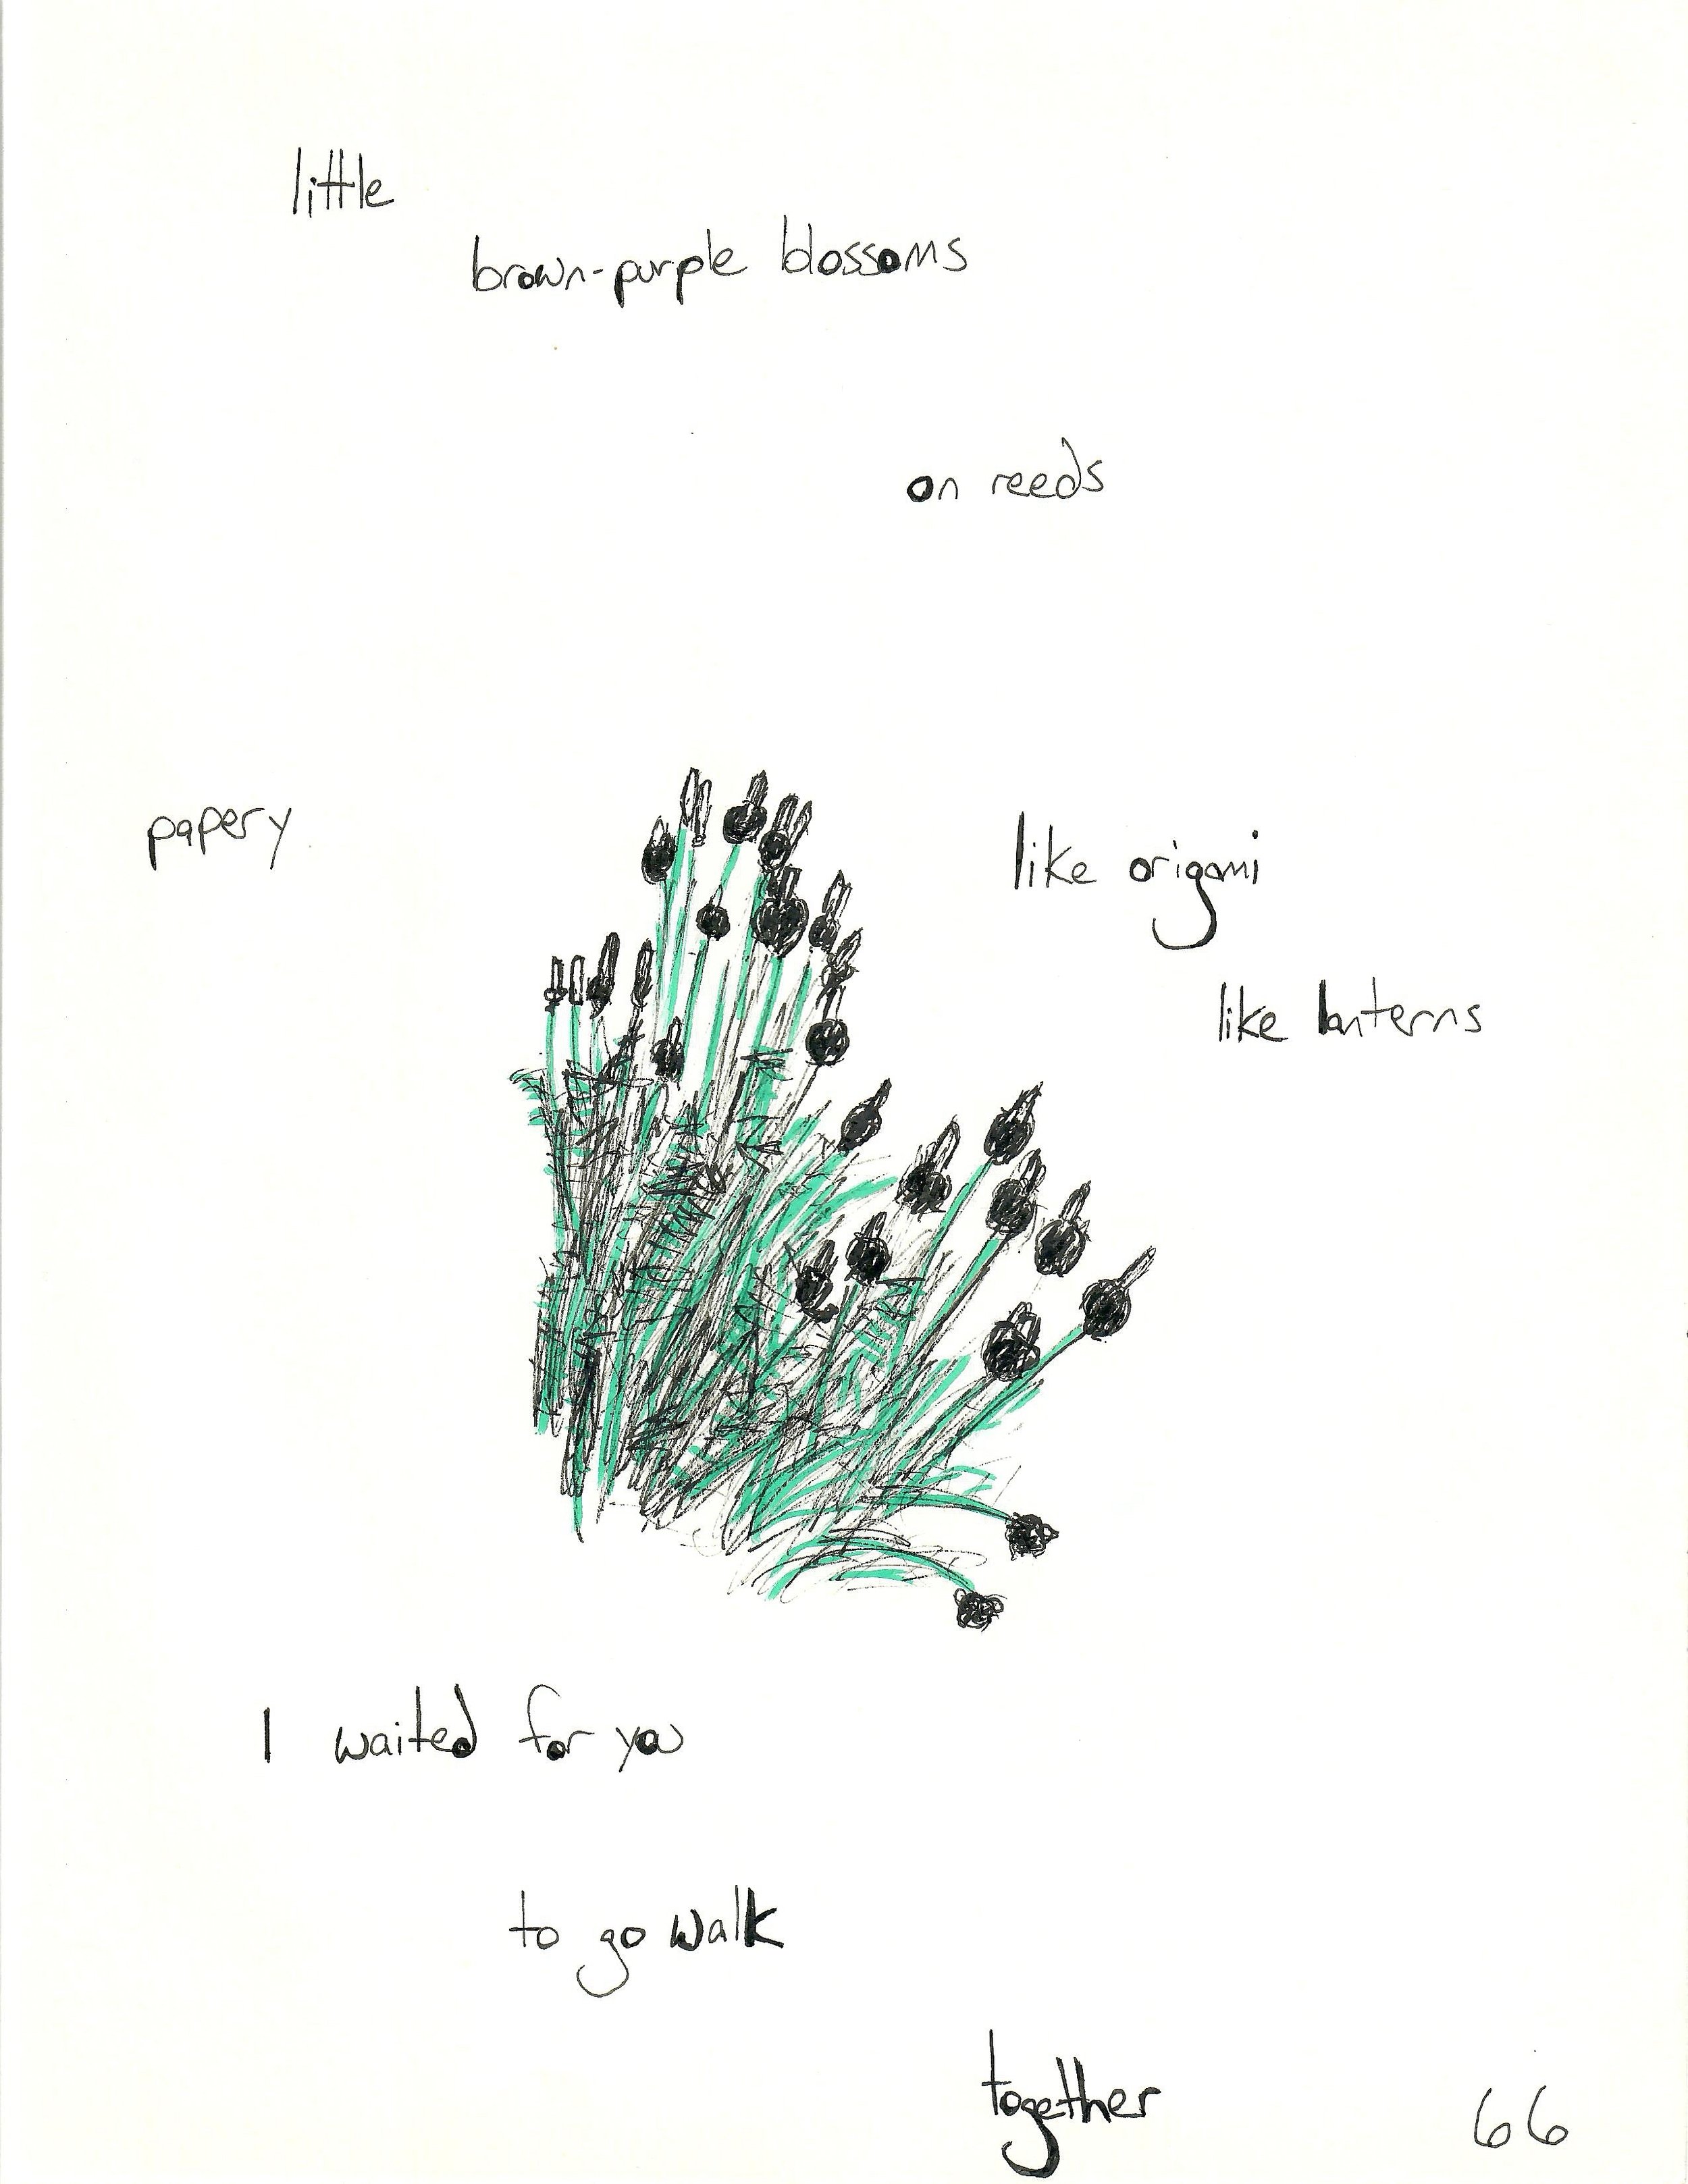 little
brown-purple blossoms
on reeds
papery
like origami
like lanterns
I waited for you
to go walk
together
66